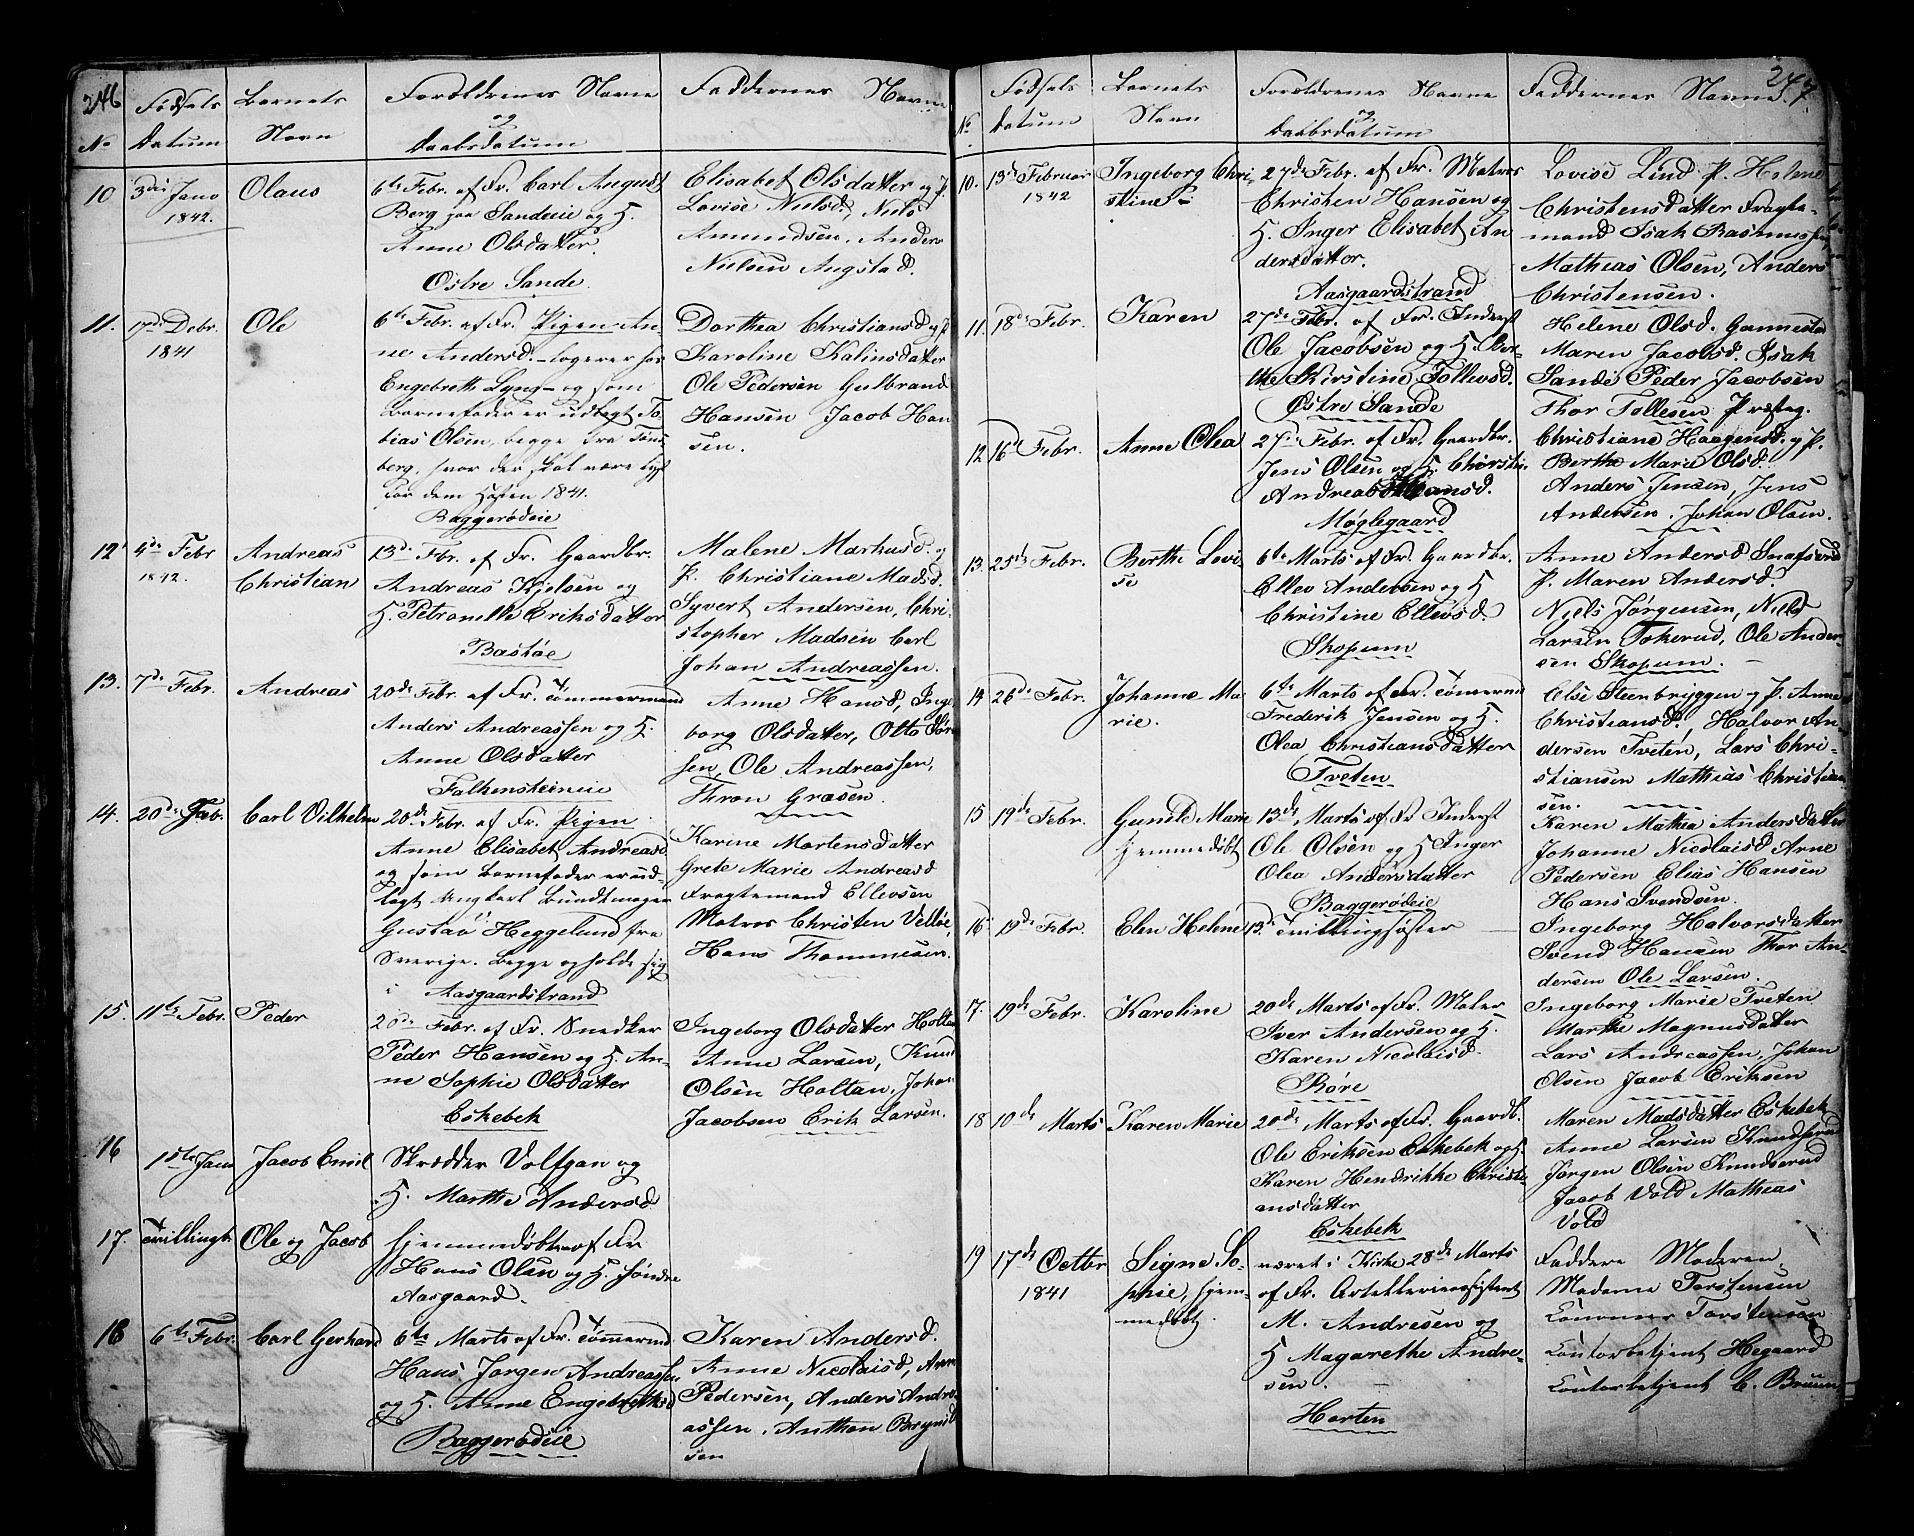 246
No
Fødsels
Datum
Barnets
Navn
Forældrenes Navne
og
Daabsdatum
Faddernes Navne
10
3die Janv
1842.
Olaus
6te Febr. af Fr. Carl August
Berg paa Sandeeie og H.
Anne Olsdatter.
Østre Sande.
Elisabet Olsdatter og P.
Lovise Nielsd, Niels
Amundsen, Anders
Nielsen Augstad.
11.
17de Debr.
1841
Ole
6te Febr. af Fr. Pigen An-
ne Andersd. logerer hos
Engebreth Lyng og som
Barnefader er udlagt To-
bias Olsen, begge fra Tøns-
berg, hvor der skal være lyst
for dem Høsten 1841.
Baggerødeie
Dorthea Christiansd og P.
Karoline Kalinsdatter
Ole Pedersen Gulbrand
Hansen Jacob Han
sen.
12
4de Febr
1842.
Andreas
Christian
13de Febr. af Fr. Gaardbr.
Andreas Kjelsen og
H. Petronelle Eriksdatter
Bastøe
Malene Markusd. og
P. Christiane Madsd.
Syvert Andersen, Chri-
stopher Madsen Carl
Johan Andreassen.
13.
7de Febr.
Andreas
20de Febr. af Fr. Tømmermand
Anders Andreassen og H.
Anne Olsdatter
Falkensteeneie
Anne Hansd, Inge
borg Olsdatter, Otto
sen, Ole Andreassen,
Thron Græsen.
14.
20de Febr.
Carl Vilhelm
20de Febr. af Fr. Pigen
Anne Elisabet Andreasd
og som Barnefader er ud-
lagt Ungkarl Bundtmager
Gustav Heggelund fra
Sverige. Begge opholde sig
i Aasgaardstrand
Karine Mortensdatter
Grete Marie Andreasd
Fragtemand Ellevsen
Matros Christen Velløe,
Hans Thommesen.
15.
11te Febr.
Peder
20de Febr. af Fr. Snedker
Peder Hansen og H. An-
ne Sophie Olsdatter
Eskebek
Ingeborg Olsdatter Holtan
Anne Larsen, Knud
Olsen Holtan, Johan
Jacobsen Erik Larsen.
16
1ste Janv
Jacob Emil
Skrædder Volfgan og
H. Marthe Andersd
17.
Tvillingb
Ole og Jacob
hjemmedøbte af Fr
Hans Olsen og H. søndre
Aasgaard.
18
6te Febr.
Carl Gerhard
6te Marts af Fr. Tømermd
Hans Jørgen Andreassen
og H. Anne Engebrethsd
Baggerødeie
Karen Andersd.
Anne Nicolaisd, Arne
Pedersen, Anders Andre-
assen, Anthon Brynild
sen
247.
No
Fødsels
Datum
Barnets
Navn
Forældrenes Navne
og
Daabsdatum
Faddernes Navne
10.
13de Februar
1842
Ingeborg Chri-
stine
27de Febr. af Fr. Matros
Christen Hansen og
H. Inger Elisabet An
dersdatter.
Aasgaardstrand
Lovise Lund P. Helene
Christensdatter Fragte-
mand Isak Rasmussen
Mathias Olsen, Anders
Christensen.
11.
18de Febr.
Karen
27de Febr. af Fr. Inderst
Ole Jacobsen og H. Ber-
the Kirstine Tollevsd.
Østre Sande
Helene Olsd. Gannestad
Maren Jacobsd. Isak
Sande Peder Jacobsen
Thor Tollesen Præsteg.
12
16de Febr.
Anne Olea
27de Febr. af Fr. Gaardbr.
Jens Olsen og H. Christi
Andrea Hansd.
Møglegaard
Christiane Haagensd. og P.
Berthe Marie Olsd.
Anders Jensen, Jens
Andersen, Johan Olsen.
13.
25de Febr.
Berthe Lovi
se
6te Marts af Fr. Gaardbr.
Ellev Andersen og H
Christine Ellevsd.
Skopum
Anne Andersd Snapsrød
P. Maren Andersd.
Niels Jørgensen, Niels
Larsen Tokerud, Ole Ander-
sen Skopum.
14
26de Febr.
Johanne Ma-
rie.
6te Marts af Fr. Tømermd
Frederik Jensen og H.
Olea Christiansdatter
Tveten
Else Steenbryggen og P. Anne
Christiansd. Halvor An
dersen Tveten, Lars Chri-
stiansen Mathias Christian
sen.
15
19de Febr.
Gunild Marie
hjemmedøbt
13de Marts af Fr Inderst
Ole Olsen og H Inger
Olea Andersdatter
Baggerødeie
Karen Mathea Andersdatter
Johanne Nicolaisd Arne
Pedersen Elias Hansen
Hans Svendsen.
16
19de Febr.
Elen Helene
13de Tvillingsøster
Ingeborg Halvorsdatter
Svend Hansen Thor An
dersen Ole Larsen.
17.
19de Febr.
Karoline
20de Marts af Fr. Maler
Iver Andersen og H.
Karen Nicolaisd.
Røre
Ingeborg Marie Tveten
Marthe Magnusdatter
Lars Andreassen, Johan
Olsen Jacob Eriksen
18
10de Marts
Karen Marie
20de Marts af Fr. Gaardb.
Ole Eriksen Eskebek og H.
Karen Hendrikke Christi-
ansdatter
Eskebek
Maren Madsdatter Eskebek
Anne Larsen Knudserød
Jørgen Olsen Knudserud
Jacob Vold Mathias
Vold
19
17de Octbr
1841
Signe So-
phie, hjem-
medøbt.
været i Kirke 28de Marts
af Fr. Artelleriassistent
M. Andresen og
H Magarethe Andre-
sen.
Horten
Faddere Moderen,
Madame Torstensen
Torstensen
Contorbetjent Hegaard
Contorbetjent C. Bruun